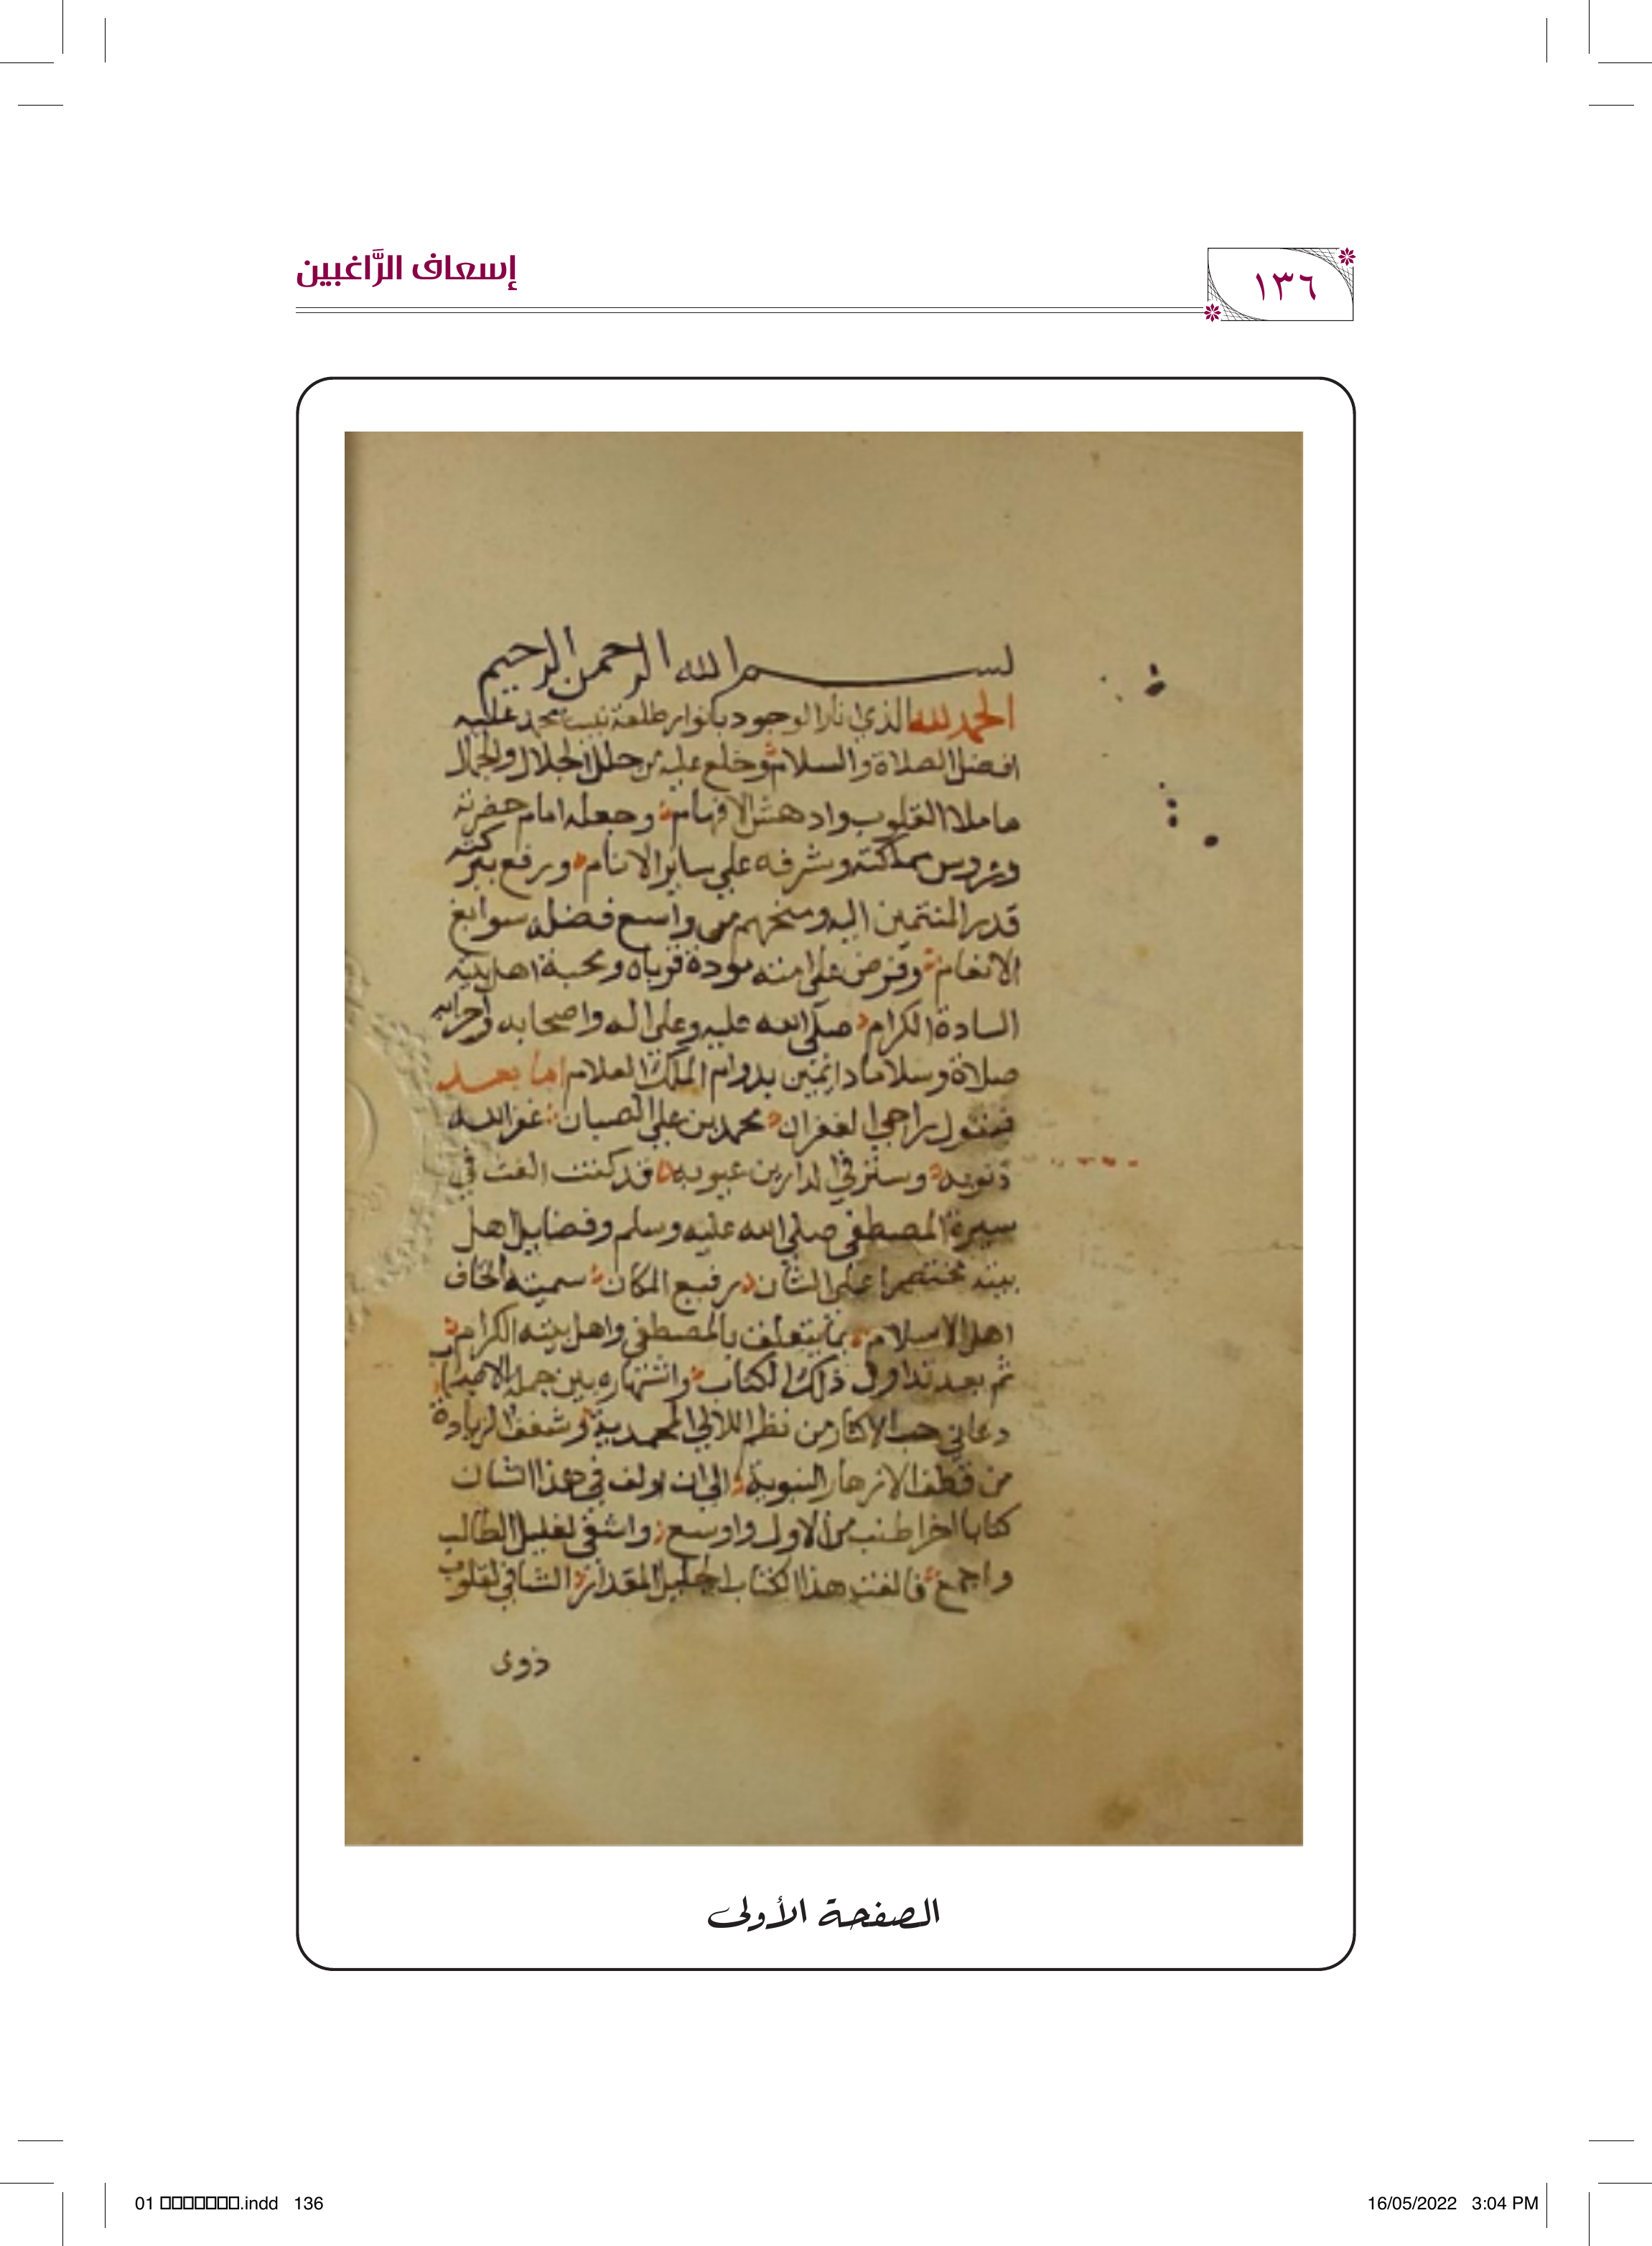 ١٣٦
إسعاف الرَّاغبين
بسم الله الرحمن الرحيم
الحمد لله الذي انار الوجود بانوار طلعة نبيه محمد عليه
افضل الصلاة والسلام وخلع عليه من حلل الجلال والجمال
ما ملا القلوب وادهش الافهام وجعله امام حضرته
وعروس مملكته وشرفه علي ساير الانام ورفع ببركته
قدر المنتمين اليه ومنحهم من واسع فضله سوابغ
الانعام وفرض على امته مودة قرباه ومحبة اهل بيته
السادة الكرام صلى الله عليه وعلى اله واصحابه واحزابه
صلاة وسلاما دائمين بدوام الملك العلام اما بعد
فيقول راجي الغفران محمد بن علي الصبان غفر الله
ذنوبه وستر في الدارين عيوبه قد كنت الفت في
سيرة المصطفى صلي الله عليه وسلم وفضايل اهل
بيته مختصرا علي الشان رفيع المكان سميته اتحاف
اهل الاسلام بما يتعلق بالمصطفى واهل بيته الكرام
ثم بعد تداول ذلك الكتاب واشتهاره بين جملة الاحباب
دعاني حب الاكثار من نظم اللالي المحمدية وشغف الزيادة
من قطف الازهار النبوية الى ان اولف في هذا الشان
كتابا اخر اطنب من الاول واوسع واشفى لغليل الطالب
واجمع فالفت هذا الكتاب الجليل المقدار الشافي لقلوب
ذوى
الصفحة الأولى
01 .indd 136
16/05/2022 3:04 PM